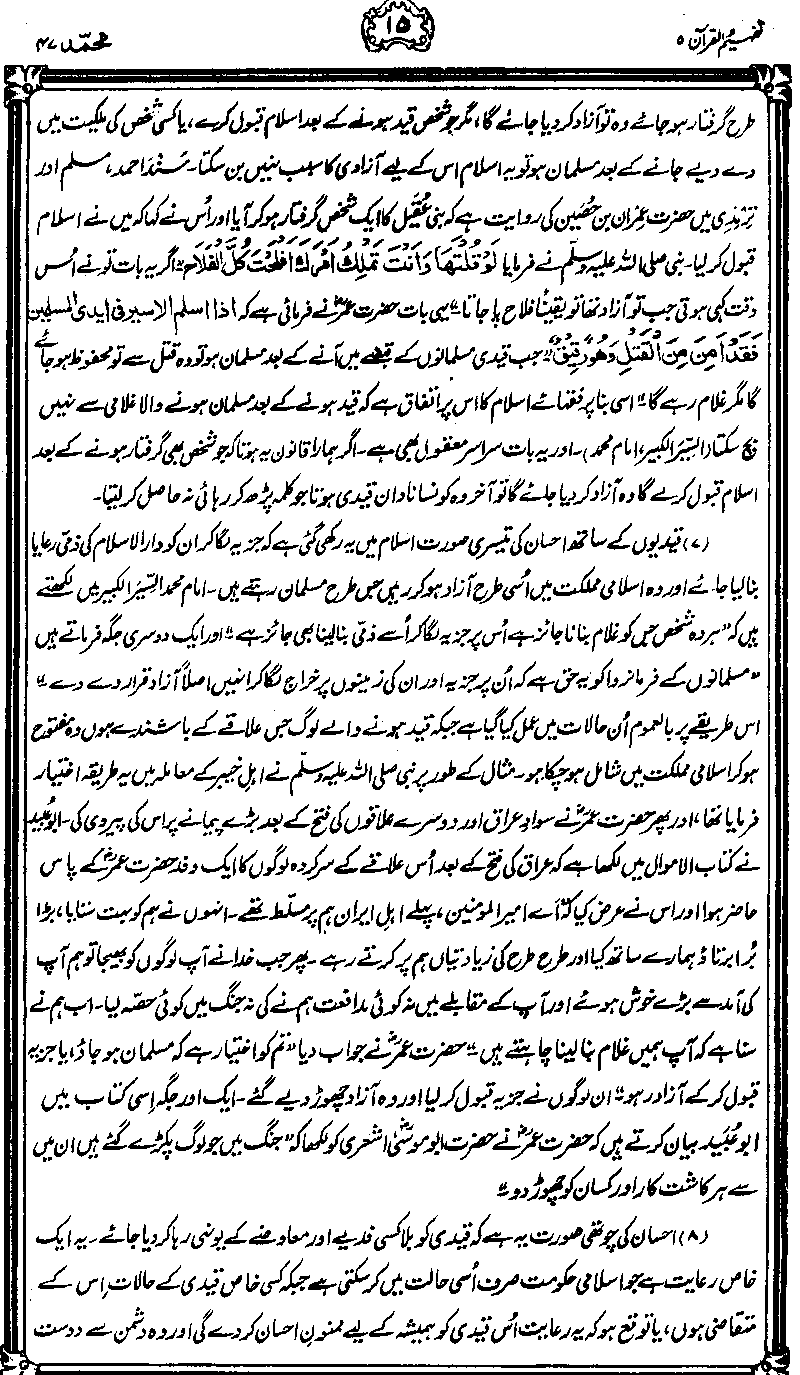 تفہیم القرآن ۵
۱۵
محمّد ۴۷
طرح گرفتار ہو جائے وہ تو آزاد کر دیا جائے گا، مگر جو شخص قید ہونے کے بعد اسلام قبول کرے، یا کسی شخص کی ملکیت میں
دے دیے جانے کے بعد مسلمان ہو تو یہ اسلام اس کے لیے آزادی کا سبب نہیں بن سکتا۔ مُسند احمد، مسلم اور
ترمذی میں حضرت عمران بن حُصَین کی روایت ہے کہ بنی عُقَیل کا ایک شخص گرفتار ہو کر آیا اور اُس نے کہا کہ میں نے اسلام
قبول کر لیا۔ نبی صلی اللہ علیہ وسلم نے فرمایا لَوْ قُلْتَھَا وَاَنْتَ تَمْلِكُ اَمْرَكَ اَفْلَحْتَ كُلَّ الْفَلَاحِ "اگر یہ بات تو نے اُس
وقت کہی ہوتی جب تو آزاد تھا تو یقیناً فلاح پا جاتا" یہی بات حضرت عمرؓ نے فرمائی ہے کہ اذا اسلم الاسیر فی ایدی المسلمین
فَقَدْ اَمِنَ مِنَ الْقَتْلِ وَھُوَ رَقِیْقٌ "جب قیدی مسلمانوں کے قبضے میں آنے کے بعد مسلمان ہو تو وہ قتل سے تو محفوظ ہو جائے
گا مگر غلام رہے گا" اسی بنا پر فقہائے اسلام کا اس پر اتفاق ہے کہ قید ہونے کے بعد مسلمان ہونے والا غلامی سے نہیں
بچ سکتا (السِّیَر الکبیر، امام محمد)۔ اور یہ بات سراسر معقول بھی ہے۔ اگر ہمارا قانون یہ ہوتا کہ جو شخص بھی گرفتار ہونے کے بعد
اسلام قبول کرے گا وہ آزاد کر دیا جائے گا تو آخر وہ کونسا نادان قیدی ہوتا جو کلمہ پڑھ کر رہائی نہ حاصل کر لیتا۔
(۷) قیدیوں کے ساتھ احسان کی تیسری صورت اسلام میں یہ رکھی گئی ہے کہ جزیہ لگا کر ان کو دارالاسلام کی ذمّی رعایا
بنا لیا جائے اور وہ اسلامی مملکت میں اُسی طرح آزاد ہو کر رہیں جس طرح مسلمان رہتے ہیں۔ امام محمد السِّیَر الکبیر میں لکھتے
ہیں کہ "ہر وہ شخص جس کو غلام بنانا جائز ہے اُس پر جزیہ لگا کر اُسے ذمّی بنا لینا بھی جائز ہے" اور ایک دوسری جگہ فرماتے ہیں
"مسلمانوں کے فرمانروا کو یہ حق ہے کہ اُن پر جزیہ اور ان کی زمینوں پر خراج لگا کر انہیں اصلاً آزاد قرار دے دے"
اس طریقے پر بالعموم اُن حالات میں عمل کیا گیا ہے جبکہ قید ہونے والے لوگ جس علاقے کے باشندے ہوں وہ مفتوح
ہو کر اسلامی مملکت میں شامل ہو چکا ہو۔ مثال کے طور پر نبی صلی اللہ علیہ وسلم نے اہلِ خیبر کے معاملہ میں یہ طریقہ اختیار
فرمایا تھا، اور پھر حضرت عمرؓ نے سوادِ عراق اور دوسرے علاقوں کی فتح کے بعد بڑے پیمانے پر اس کی پیروی کی۔ ابو عُبید
نے کتاب الاموال میں لکھا ہے کہ عراق کی فتح کے بعد اُس علاقے کے سرکردہ لوگوں کا ایک وفد حضرت عمرؓ کے پاس
حاضر ہوا اور اس نے عرض کیا کہ "اے امیر المومنین، پہلے اہلِ ایران ہم پر مسلّط تھے۔ انہوں نے ہم کو بہت ستایا، بڑا
بُرا برتاؤ ہمارے ساتھ کیا اور طرح طرح کی زیادتیاں ہم پر کرتے رہے۔ پھر جب خدا نے آپ لوگوں کو بھیجا تو ہم آپ
کی آمد سے بڑے خوش ہوئے اور آپ کے مقابلے میں نہ کوئی مدافعت ہم نے کی نہ جنگ میں کوئی حصّہ لیا۔ اب ہم نے
سنا ہے کہ آپ ہمیں غلام بنا لینا چاہتے ہیں" حضرت عمرؓ نے جواب دیا "تم کو اختیار ہے کہ مسلمان ہو جاؤ، یا جزیہ
قبول کر کے آزاد رہو" ان لوگوں نے جزیہ قبول کر لیا اور وہ آزاد چھوڑ دیے گئے۔ ایک اور جگہ اِسی کتاب میں
ابو عُبَید بیان کرتے ہیں کہ حضرت عمرؓ نے حضرت ابو موسیٰؓ اشعری کو لکھا کہ "جنگ میں جو لوگ پکڑے گئے ہیں ان میں
سے ہر کاشت کار اور کسان کو چھوڑ دو"
(۸) احسان کی چوتھی صورت یہ ہے کہ قیدی کو بلا کسی فدیے اور معاوضے کے یونہی رہا کر دیا جائے۔ یہ ایک
خاص رعایت ہے جو اسلامی حکومت صرف اُسی حالت میں کر سکتی ہے جبکہ کسی خاص قیدی کے حالات اِس کے
متقاضی ہوں، یا توقع ہو کہ یہ رعایت اُس قیدی کو ہمیشہ کے لیے ممنونِ احسان کر دے گی اور وہ دشمن سے دوست